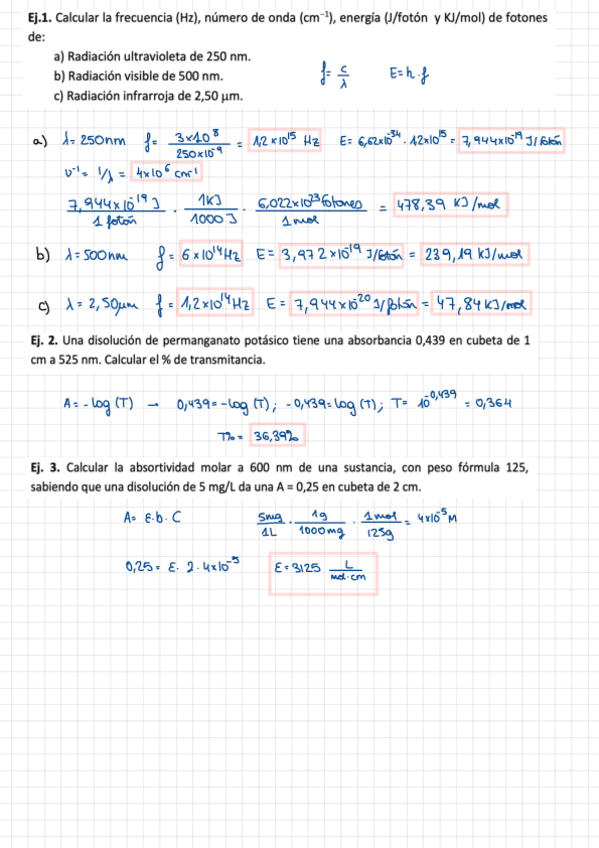 Ej.1. Calcular la frecuencia (Hz), número de onda (cm⁻¹), energía (J/fotón y KJ/mol) de fotones
de:
a) Radiación ultravioleta de 250 nm.
b) Radiación visible de 500 nm.
c) Radiación infrarroja de 2,50 μm.
f = c/λ E = h · f
a) λ = 250nm f = 3×10⁸ / 250×10⁻⁹ = 1,2×10¹⁵ Hz E = 6,62×10⁻³⁴ · 1,2×10¹⁵ = 7,944×10⁻¹⁹ J/fotón
υ⁻¹ = 1/λ = 4×10⁶ cm⁻¹
7,944×10⁻¹⁹ J / 1 fotón · 1KJ / 1000 J · 6,022×10²³ fotones / 1 mol = 478,39 KJ/mol
b) λ = 500nm f = 6×10¹⁴ Hz E = 3,972×10⁻¹⁹ J/fotón = 239,19 KJ/mol
c) λ = 2,50μm f = 1,2×10¹⁴ Hz E = 7,944×10⁻²⁰ J/fotón = 47,84 KJ/mol
Ej. 2. Una disolución de permanganato potásico tiene una absorbancia 0,439 en cubeta de 1
cm a 525 nm. Calcular el % de transmitancia.
A = - log (T) → 0,439 = -log (T) ; - 0,439 = log (T) ; T = 10⁻⁰,⁴³⁹ = 0,364
T% = 36,39%
Ej. 3. Calcular la absortividad molar a 600 nm de una sustancia, con peso fórmula 125,
sabiendo que una disolución de 5 mg/L da una A = 0,25 en cubeta de 2 cm.
A = ε · b · C 5mg / 1L · 1g / 1000mg · 1mol / 125g = 4×10⁻⁵ M
0,25 = ε · 2 · 4×10⁻⁵ ε = 3125 L / mol·cm